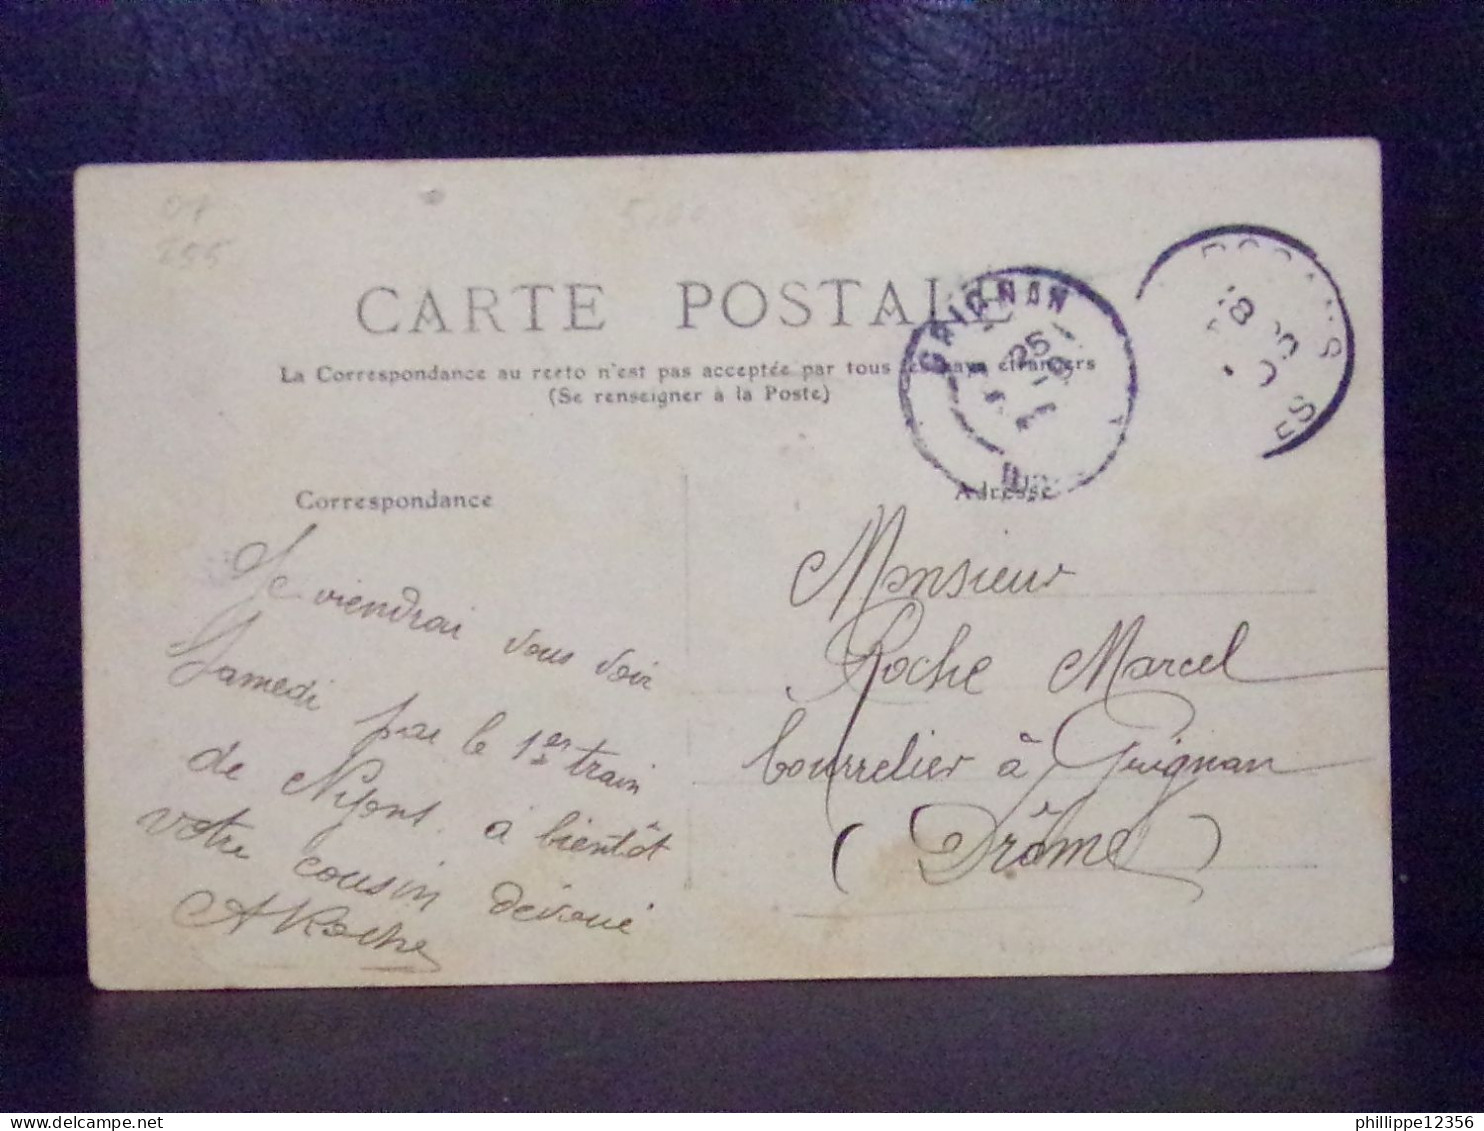 07
255
CARTE POSTALE
La Correspondance au recto n'est pas acceptée par tous les pays étrangers
(Se renseigner à la Poste)
GRIGNAN
25
Correspondance
Adresse
Je viendrai vous voir
Samedi par le 1er train
de Nyons. à bientôt
votre cousin dévoué
A Roche
Monsieur
Roche Marcel
bourrelier à Grignan
(Drôme)
phillippe12356